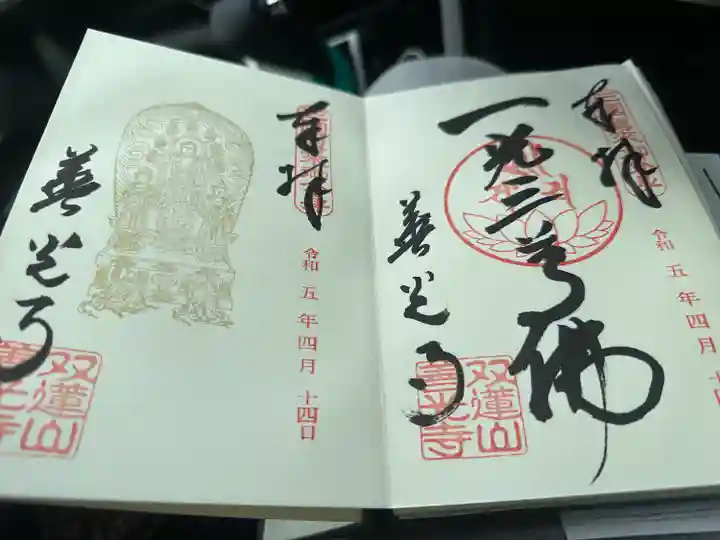 奉拝
一光三尊佛
善光寺
令和 五年 四月 十四日
双蓮山
善光寺
奉拝
善光寺
令和 五年 四月 十四日
双蓮山
善光寺